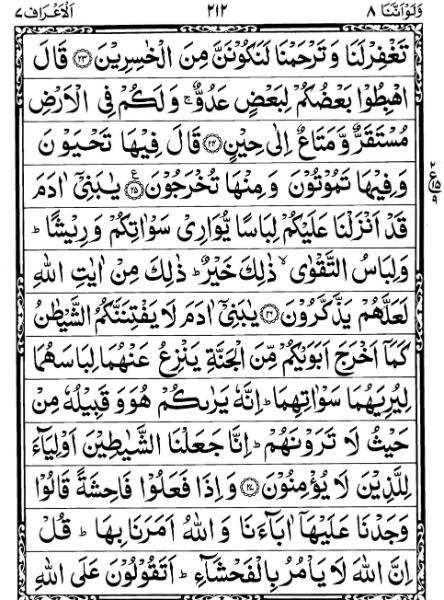 وَلَوْاَنَّنَا ٨ ٢١٢ اَلْاَعْرَاف ٧
تَغْفِرْ لَنَا وَ تَرْحَمْنَا لَنَكُوْنَنَّ مِنَ الْخٰسِرِيْنَ ﴿٢٣﴾ قَالَ
اهْبِطُوْا بَعْضُكُمْ لِبَعْضٍ عَدُوٌّ ۚ وَ لَكُمْ فِي الْاَرْضِ
مُسْتَقَرٌّ وَّ مَتَاعٌ اِلٰى حِيْنٍ ﴿٢٤﴾ قَالَ فِيْهَا تَحْيَوْنَ
وَ فِيْهَا تَمُوْتُوْنَ وَ مِنْهَا تُخْرَجُوْنَ ﴿٢٥﴾ يٰبَنِيْۤ اٰدَمَ
قَدْ اَنْزَلْنَا عَلَيْكُمْ لِبَاسًا يُّوَارِيْ سَوْاٰتِكُمْ وَ رِيْشًا ؕ
وَ لِبَاسُ التَّقْوٰى ۙ ذٰلِكَ خَيْرٌ ؕ ذٰلِكَ مِنْ اٰيٰتِ اللّٰهِ
لَعَلَّهُمْ يَذَّكَّرُوْنَ ﴿٢٦﴾ يٰبَنِيْۤ اٰدَمَ لَا يَفْتِنَنَّكُمُ الشَّيْطٰنُ
كَمَاۤ اَخْرَجَ اَبَوَيْكُمْ مِّنَ الْجَنَّةِ يَنْزِعُ عَنْهُمَا لِبَاسَهُمَا
لِيُرِيَهُمَا سَوْاٰتِهِمَا ؕ اِنَّهٗ يَرٰىكُمْ هُوَ وَ قَبِيْلُهٗ مِنْ
حَيْثُ لَا تَرَوْنَهُمْ ؕ اِنَّا جَعَلْنَا الشَّيٰطِيْنَ اَوْلِيَآءَ
لِلَّذِيْنَ لَا يُؤْمِنُوْنَ ﴿٢٧﴾ وَ اِذَا فَعَلُوْا فَاحِشَةً قَالُوْا
وَجَدْنَا عَلَيْهَاۤ اٰبَآءَنَا وَ اللّٰهُ اَمَرَنَا بِهَا ؕ قُلْ
اِنَّ اللّٰهَ لَا يَاْمُرُ بِالْفَحْشَآءِ ؕ اَتَقُوْلُوْنَ عَلَى اللّٰهِ